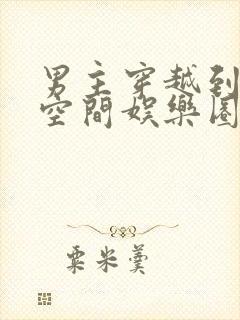 男主穿越到
空間娛樂圈
粟米羹